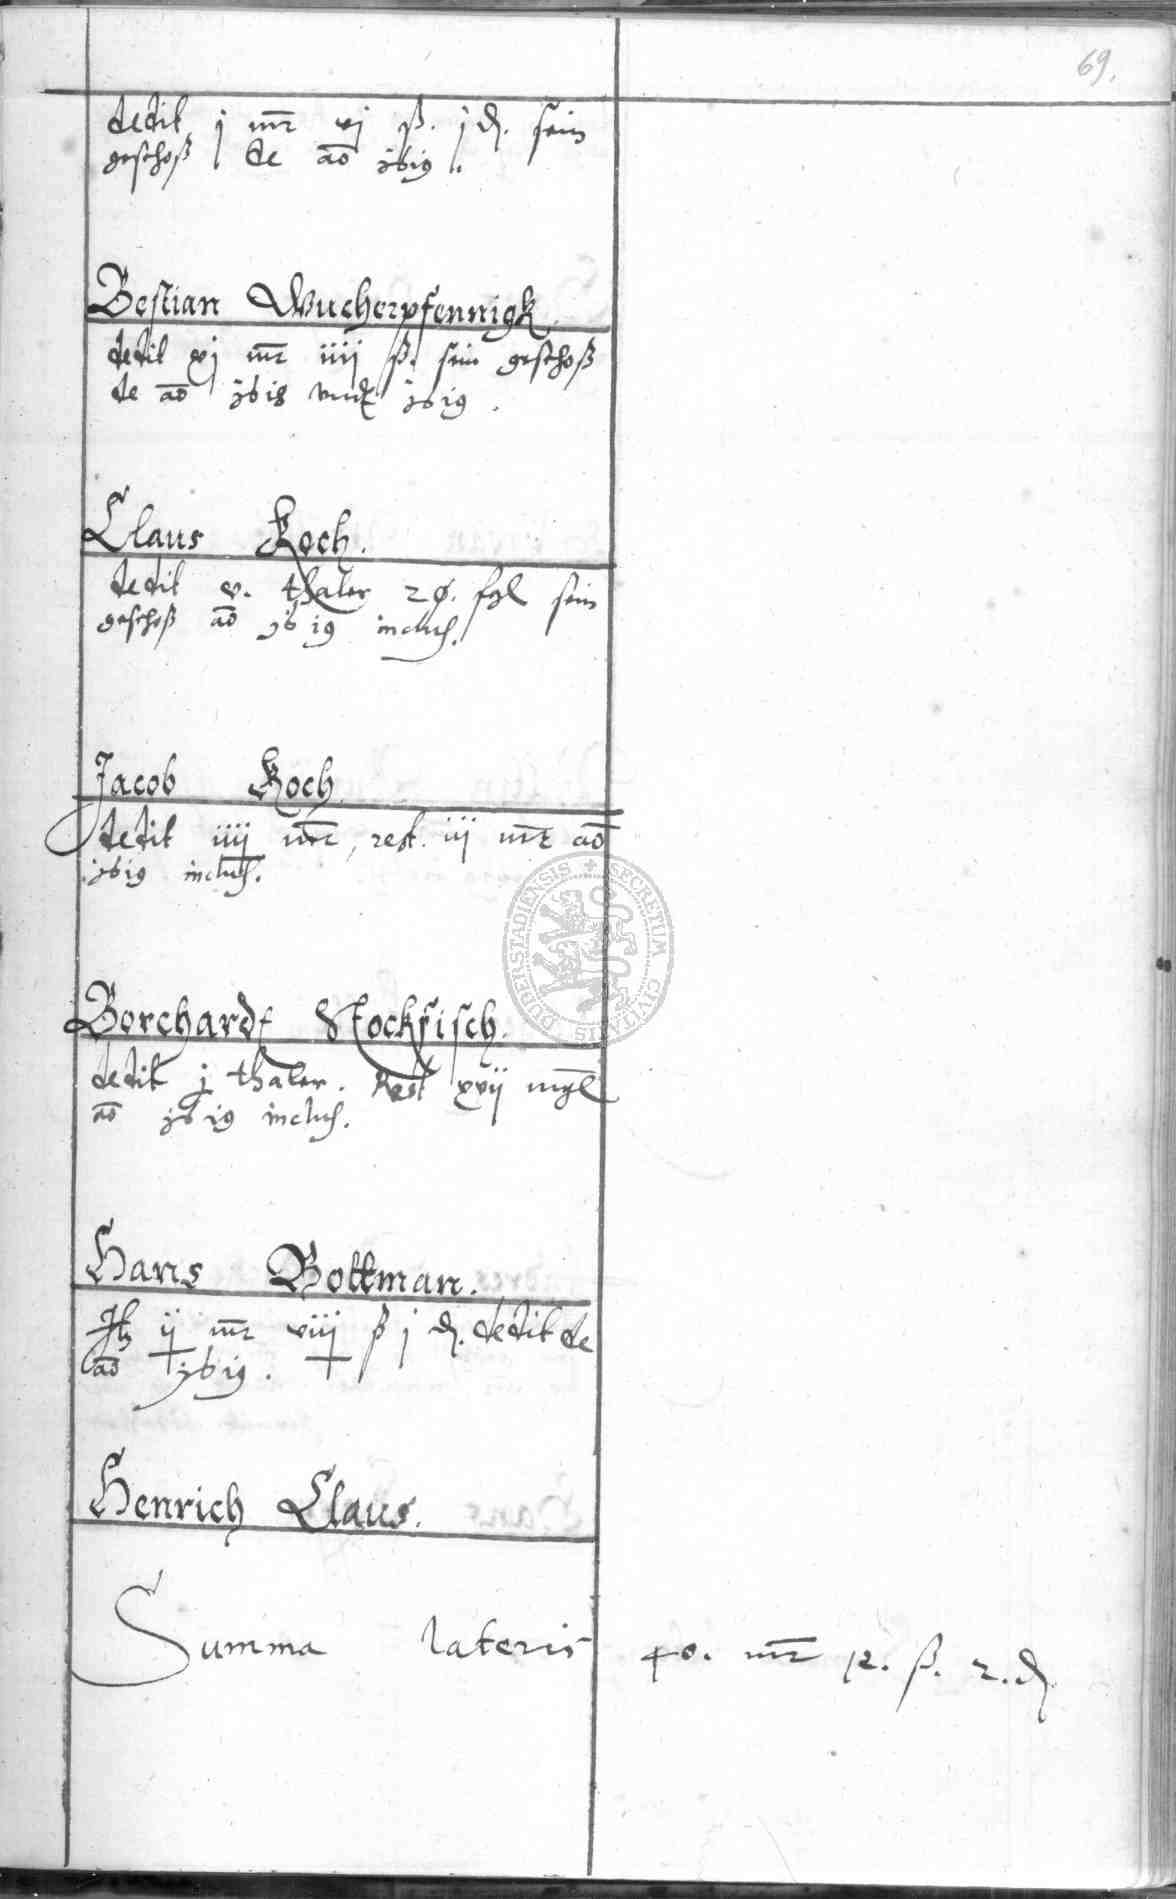 69.
dedit j mr vj ß. j d. sein
geschoß de ao 1619.
Bestian Wucherpfennigk.
dedit xj mr iiij ß. sein geschoß
de ao 1618 vnd 1619.
Claus Koch.
dedit v. thaler 20. fgl sein
geschoß ao 1619 inclus.
Jacob Koch.
dedit iiij mr, rest. iij mr ao
1619 inclus.
Borchardt Stockfisch.
dedit j thaler. Rest xvij mgl
ao 1619 inclus.
Hans Bottman.
ij mr viij ß j d. dedit de
ao 1619.
Henrich Claus.
Summa lateris 40. mr 12. ß. 2. d
SECRETUM CIVITATIS DUDERSTADIENSIS